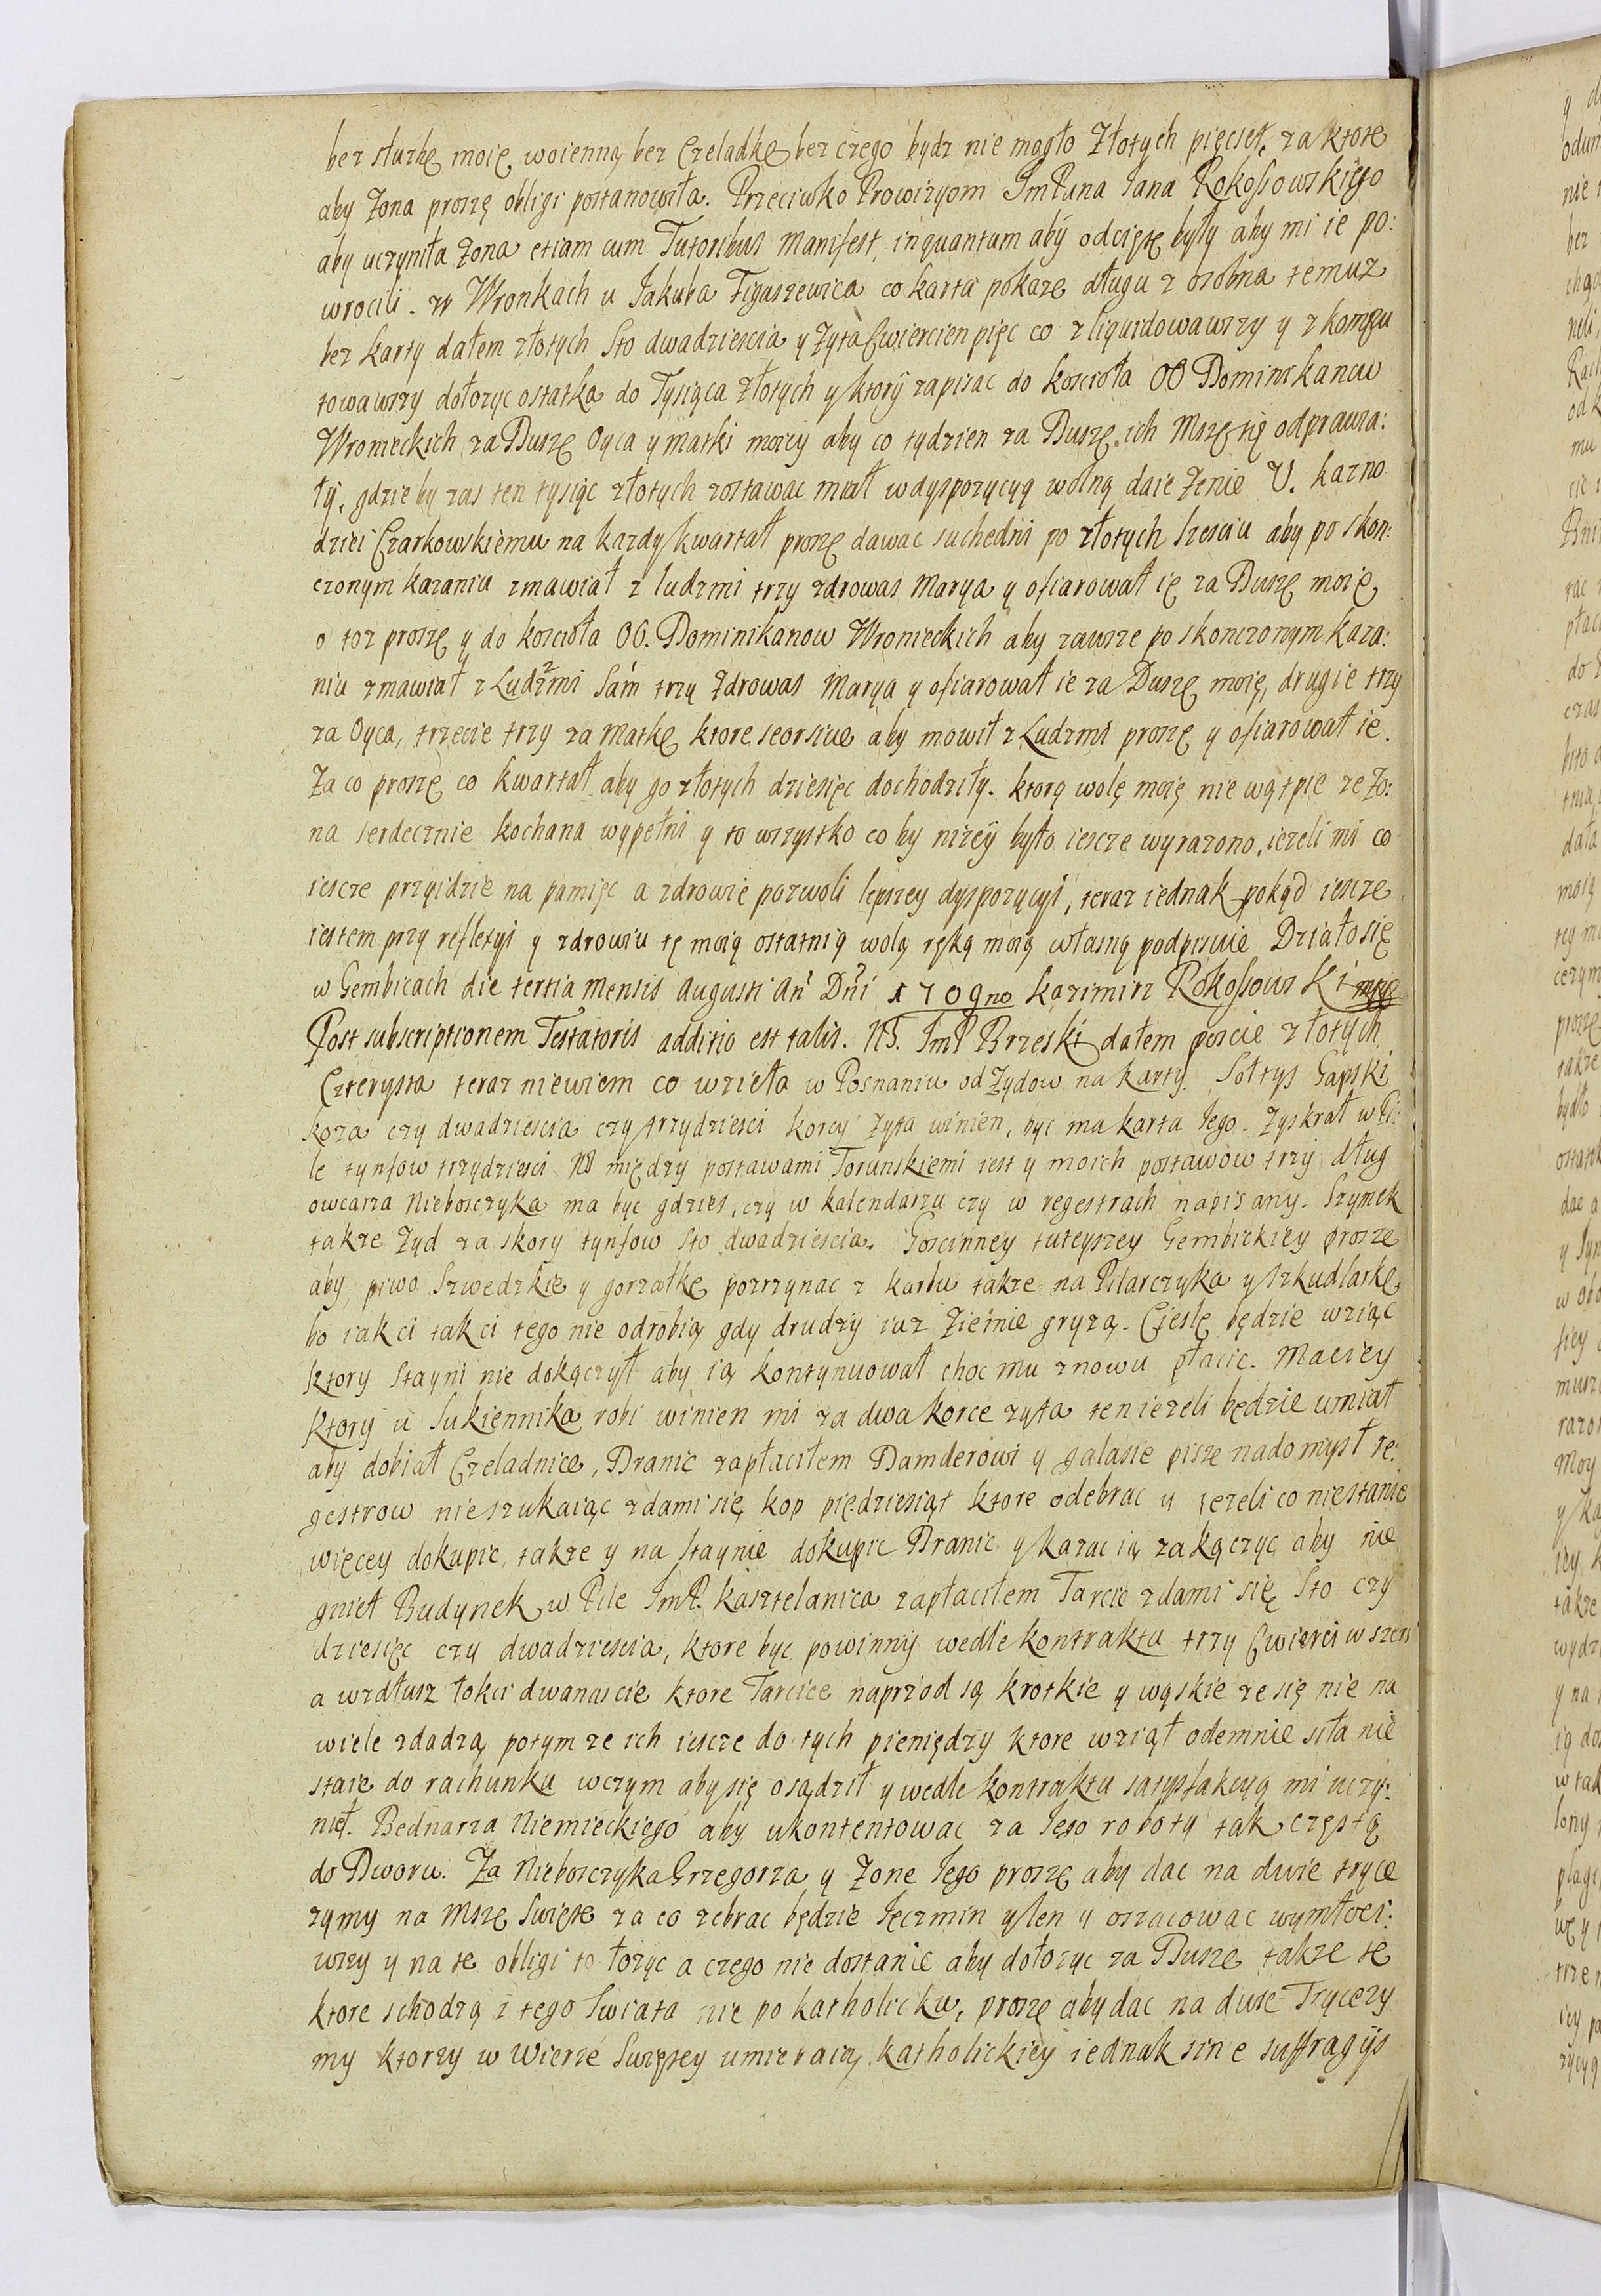 bez służbę moię woienną bez Czeladkę bez czego bydz nie mogło Złotych pięcset, za ktore
aby Zona proszę obligi postanowiła. Przeciwko Prowizyom ImPana Jana Rokossowskiego
aby uczyniła zona etiam cum Tutoribus manifest, inquantum aby odcięte były aby mi ie po:
wrocili. w Wronkach u Jakuba Figaszewica co karta pokaze długu z osobna temuz
bez karty dałem złotych Sto dwadziescia y Zyta Cwiercien pięc co zliquidowawszy y zkompu
towawszy dołozyc ostatka do Tysiąca złotych y ktory zapisac do koscioła OO Dominikanow
Wronieckich za Dusze Oyca y matki moiey aby co tydzien za Dusze ich Msze się odprawia:
ły, gdzie by zas ten tysiąc złotych zostawac miał w dyspozycyą wolną daie Zenie V. kazno
dziei Czarkowskiemu na kazdy kwartał proszę dawac suchedni po złotych szesciu aby po skon:
czonym kazaniu zmawiał z ludzmi trzy zdrowas Marya y ofiarował ie za Duszę moię,
o toz proszę y do koscioła OO. Dominikanow Wronieckich aby zawsze po skonczonym kaza:
niu zmawiał z Ludzmi Sam trzy Zdrowas Marya y ofiarował ie za Duszę moię, drugie trzy
za Oyca, trzecie trzy za Matkę ktore seorsive aby mowił z Ludzmi proszę y ofiarował ie.
Za co proszę co kwartał aby go złotych dziesięc dochodziły. ktorą wolę moię nie wątpie ze Zo:
na serdecznie kochana wypełni y to wszystko co by nizey było iescze wyrazono, iezeli mi co
iescze przyidzie na pamięc a zdrowie pozwoli lepszey dyspozycyi, teraz iednak pokąd iescze
iestem przy reflexyi y zdrowiu tę moią ostatnią wolą ręką moią własną podpisuie Działo się
w Gembicach die tertia Mensis Augusti Añ Dñi 1709no Kazimirz Rokossowski mpp
Post subscriptionem Testatoris additio est talis. NB. ImP Brzeski dałem poscie złotych
Czterysta teraz niewiem co wzieła w Posnaniu od Zydow na karty. Sołtys Gapski
koza czy dwadziescia czy trzydziesci korcy zyta winien, byc ma karta Jego. Zyskrał w Pi:
le tynfow trzydziesci NB między postawami Torunskiemi iest y moich postawow trzy dług
owcarza Nieboszczyka ma byc gdzies, czy w kalendarzu czy w regestrach napisany. Szymek
takze Zyd za skory tynfow sto dwadziescia. Goscinney tuteyszey Gembickiey prosze
aby piwo Szwedzkie y gorzałkę pozrzynac z karbu takze na Pilarczyka y Szkudlarkę
bo iak ci tak ci tego nie odrobią gdy drudzy iuz ziemie gryzą. Cieslę będzie wziąc
ktory stayni nie dokączył aby ią kontynuował choc mu znowu płacic. Maciey
ktory u Sukiennika robi winien mi za dwa korce zyta ten iezeli będzie umiał
aby dobiał Czeladnice, Dranic zapłaciłem Damderowi y galasie pisze na domysł re:
gestrow nieszukaiąc zdami się kop piędziesiąt ktore odebrac y iezeli co niestanie
więcey dokupic, takze y na staynie dokupic Dranic y kazac ią zakączyc aby nie
gnieł Budynek w Pile ImP. kasztelanica zapłaciłem Tarcic zdami się Sto czy
dziesięc czy dwadziescia, ktore byc powinny wedle kontraktu trzy Cwierci w szerz
a wzdłusz łokci dwanascie ktore Tarcice naprzod są krotkie y wąskie ze się nie na
wiele zdadzą potym ze ich iescze do tych pieniędzy ktore wziął odemnie siła nie
staie do rachunku wczym aby się osądził y wedle kontraktu satysfakcyą mi uczy:
nił. Bednarza Niemieckiego aby ukontentowac za Jego roboty tak częstą
do Dworu. Za Nieboszczyka Grzegorza y Zone Jego proszę aby dac na dwie trycę
zymy na Mszę Swięte za co zebrac będzie Jęczmin y len y oszacowac wymłoci:
wszy y na te obligi to łozyc a czego nie dostanie aby dołozyc za Dusze takze te
ktore schodzą z tego Swiata nie po katholicku, proszę aby dac na dwie Tryczezy
my ktorzy w Wierze Swiętey umieraią katholickiey iednak sine suffragys